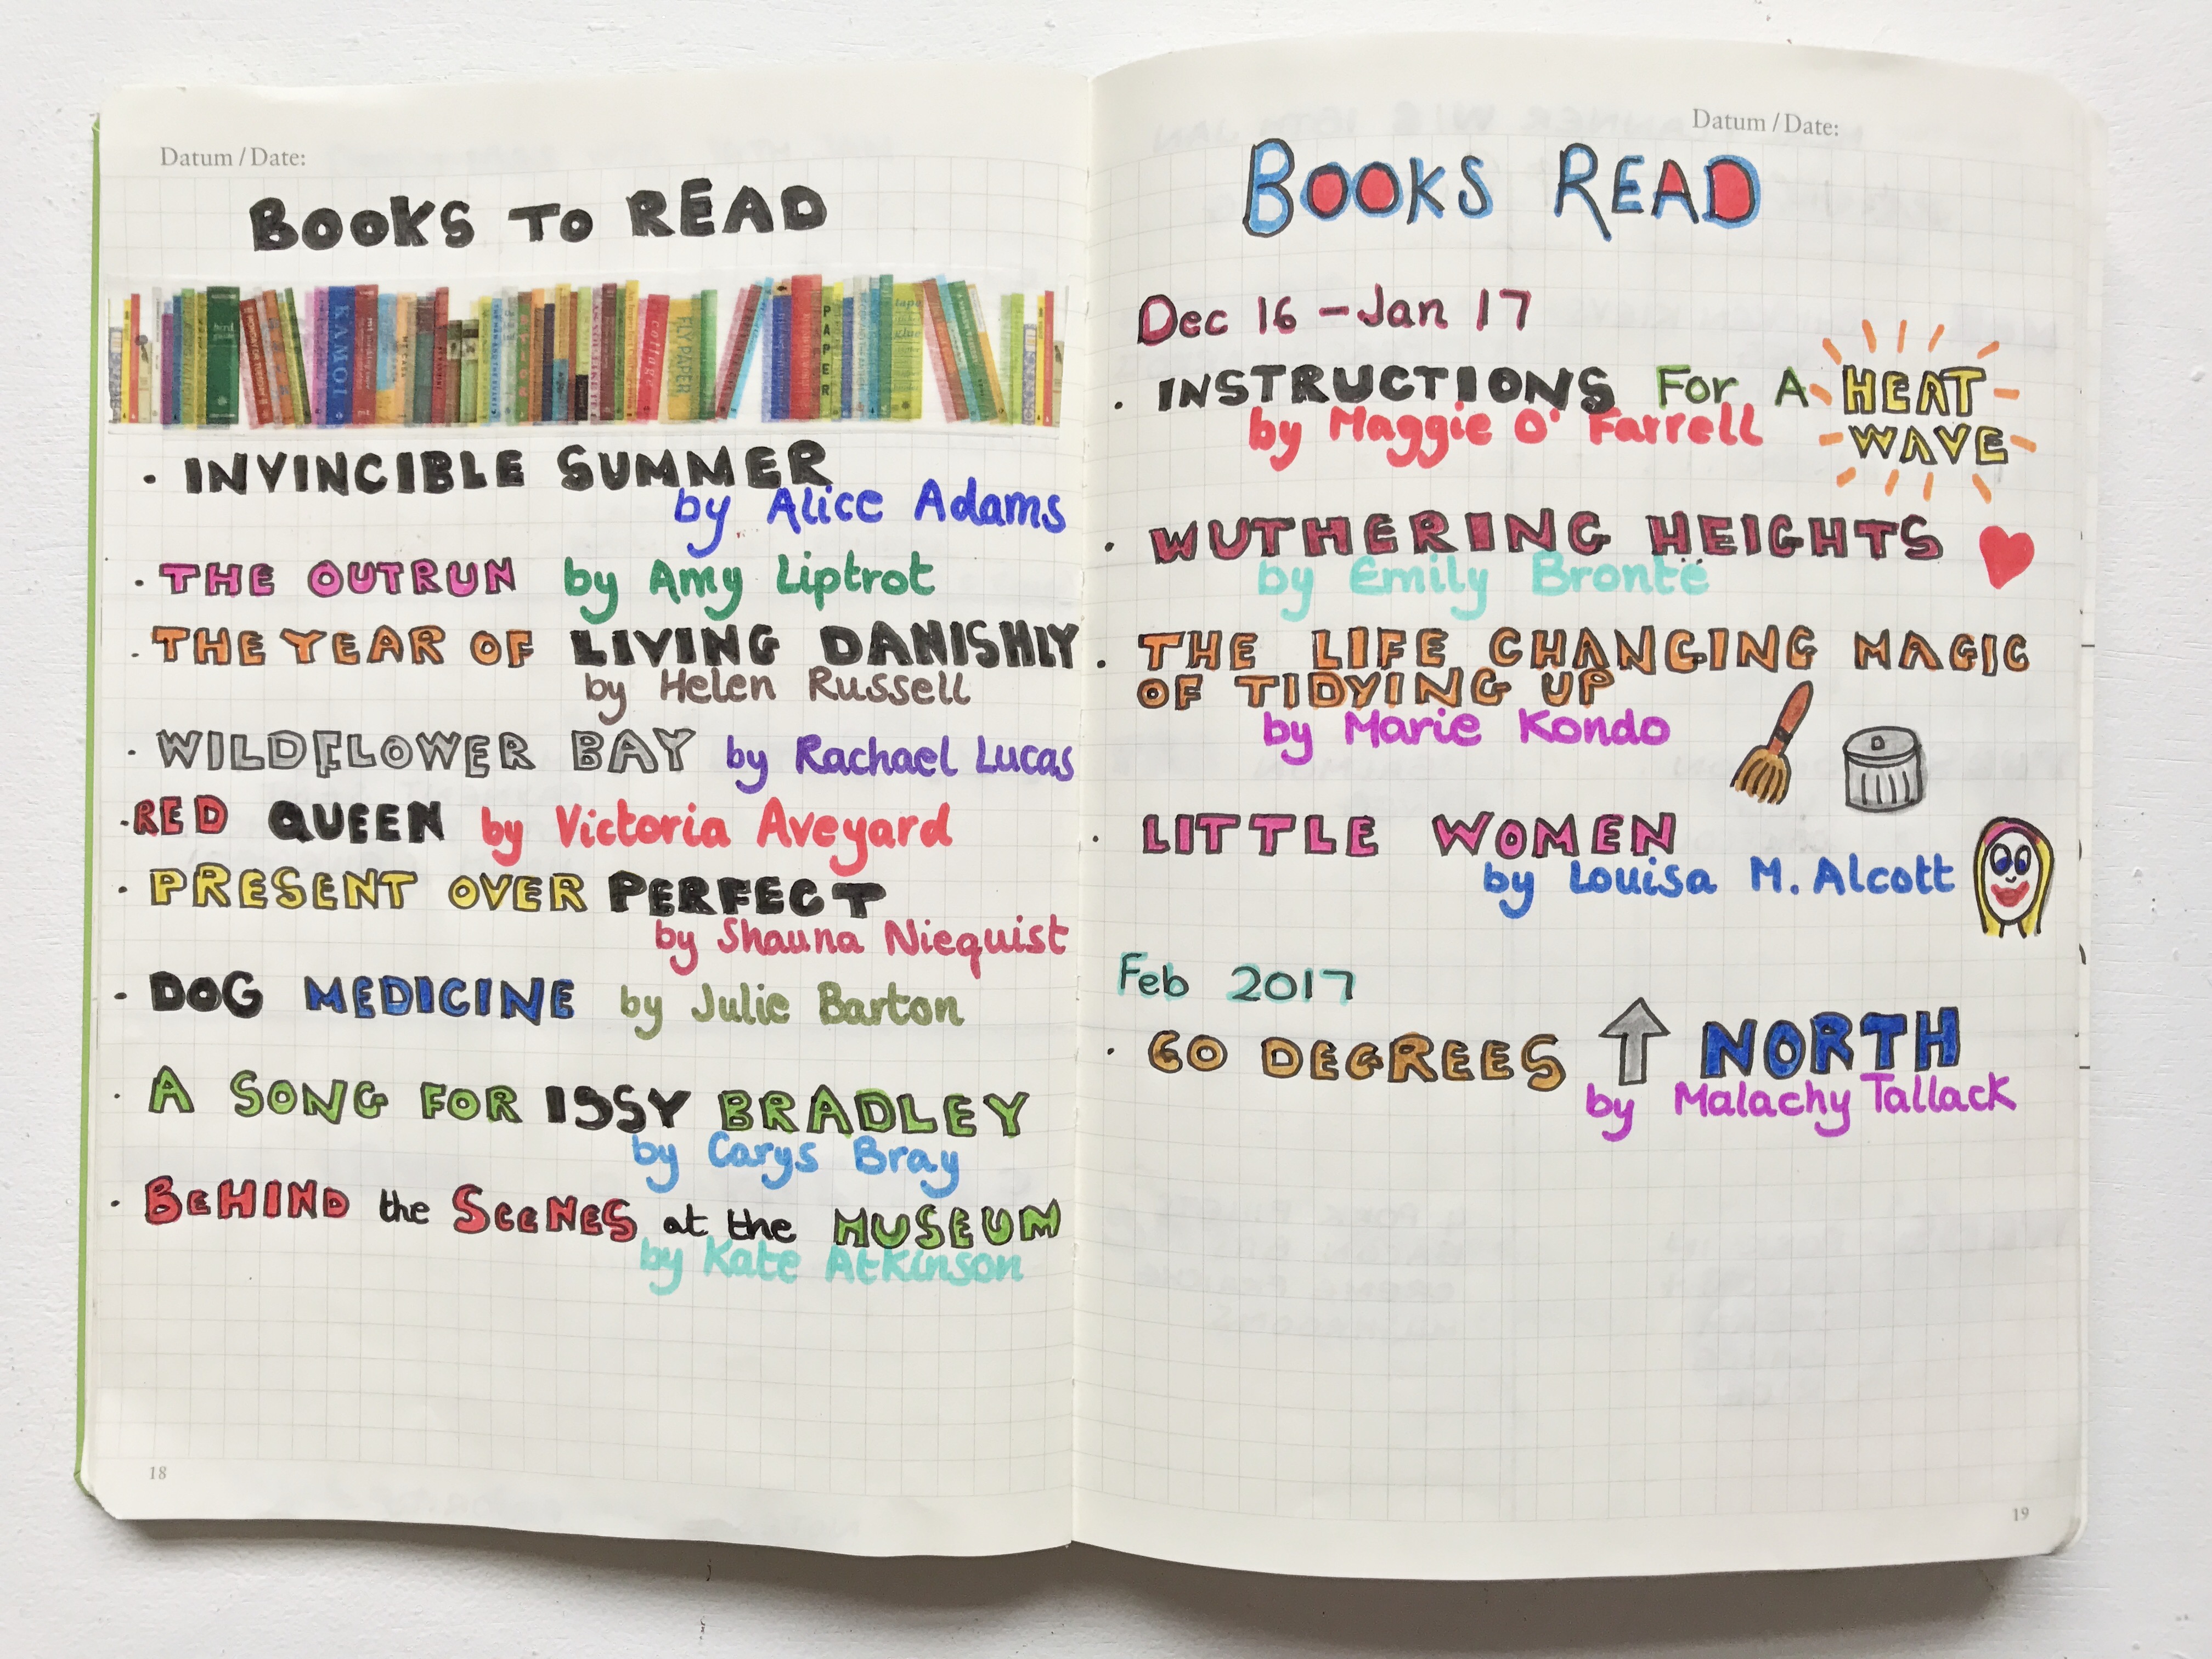 Datum / Date:
BOOKS TO READ
KAMOI
cottage
FLY PAPER
PAPER
tape
glue
bird
· INVINCIBLE SUMMER
by Alice Adams
· THE OUTRUN by Amy Liptrot
· THE YEAR OF LIVING DANISHLY
by Helen Russell
· WILDFLOWER BAY by Rachael Lucas
· RED QUEEN by Victoria Aveyard
· PRESENT OVER PERFECT
by Shauna Niequist
· DOG MEDICINE by Julie Barton
· A SONG FOR ISSY BRADLEY
by Carys Bray
· BEHIND the SCENES at the MUSEUM
by Kate Atkinson
18
Datum / Date:
BOOKS READ
Dec 16 – Jan 17
· INSTRUCTIONS For A HEAT
WAVE
by Maggie O' Farrell
· WUTHERING HEIGHTS
by Emily Brontë
· THE LIFE CHANGING MAGIC
OF TIDYING UP
by Marie Kondo
· LITTLE WOMEN
by Louisa M. Alcott
Feb 2017
· 60 DEGREES NORTH
by Malachy Tallack
19